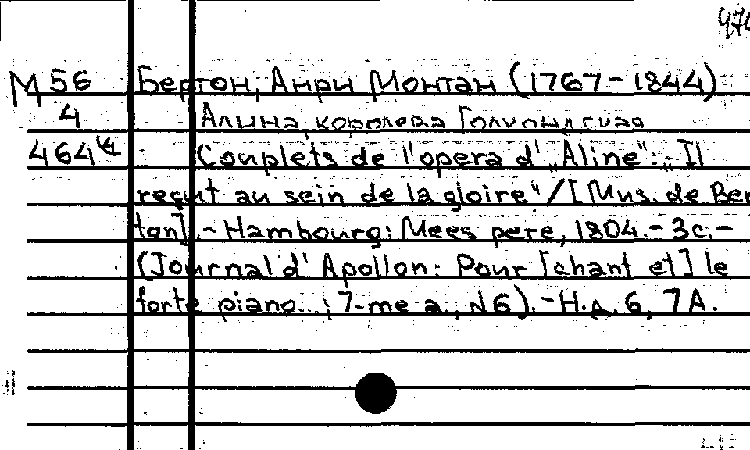 М 56 Бертон, Анри Монтан (1767-1844)
4 Алина, королева Голкондская
464 Couplets de l'opera d' „Aline": „Il
reçut au sein de la gloire" / [Mus. de Ber
ton]. - Hambourg: Mees pere, 1804. - 3c. -
(Journal d' Apollon: Pour [chant et] le
forte piano... ; 7-me a., N 6). - Н.д. 6, 7А.